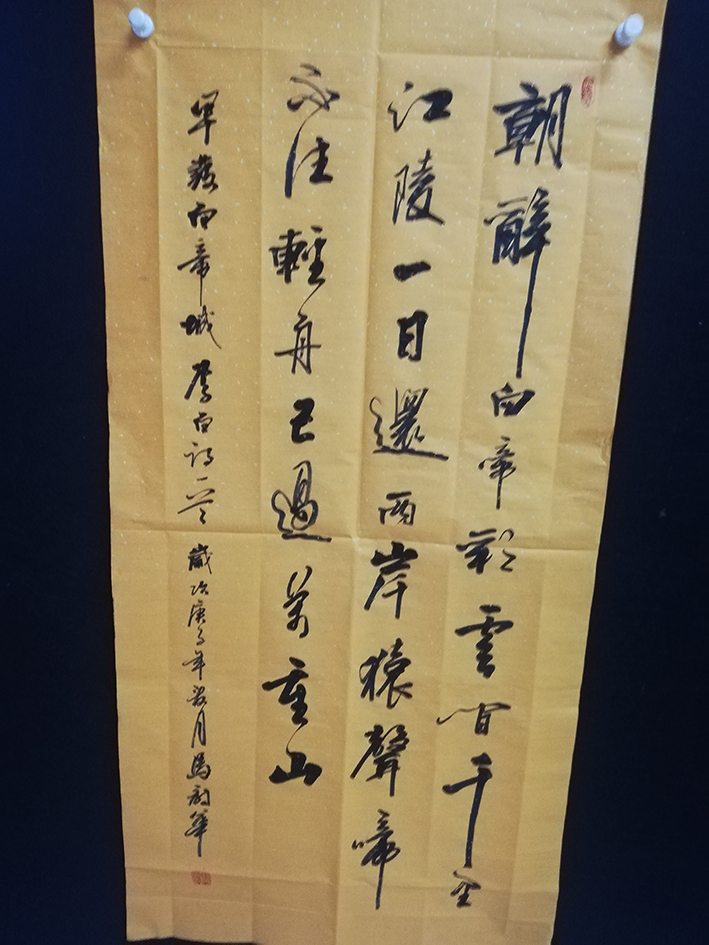 朝辭白帝彩雲間千里
江陵一日還兩岸猿聲啼
不住輕舟已過萬重山
早發白帝城李白詩一首歲次庚子年月馬華